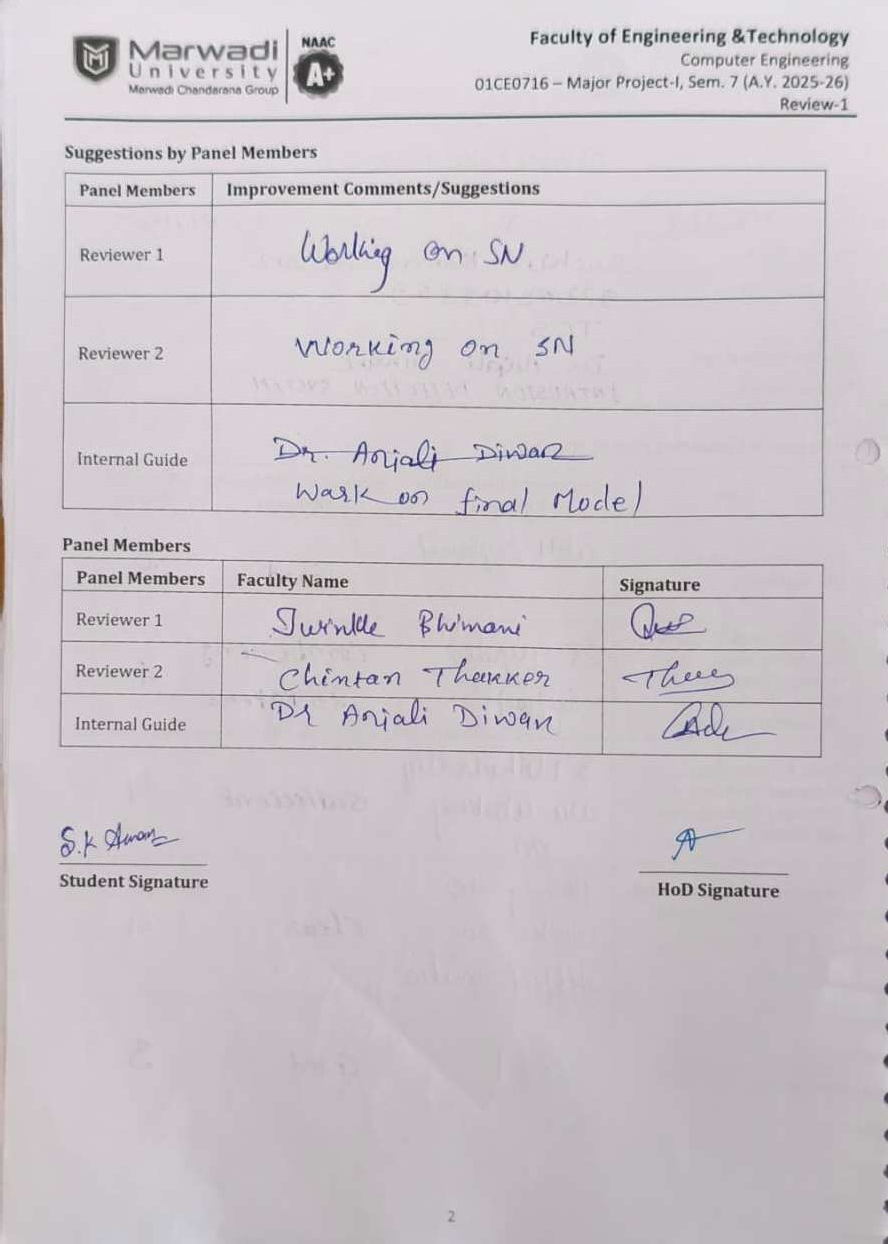 Marwadi
University
Marwadi Chandarana Group
NAAC
A+
Faculty of Engineering &Technology
Computer Engineering
01CE0716 – Major Project-I, Sem. 7 (A.Y. 2025-26)
Review-1
Suggestions by Panel Members
Panel Members Improvement Comments/Suggestions
Reviewer 1 Working on SN.
Reviewer 2 Working on SN
Internal Guide Dr. Anjali Diwan
Work on final Model
Panel Members
Panel Members Faculty Name Signature
Reviewer 1 Twinkle Bhimani
Reviewer 2 Chintan Thakker
Internal Guide Dr Anjali Diwan
S.K
Student Signature
HoD Signature
2